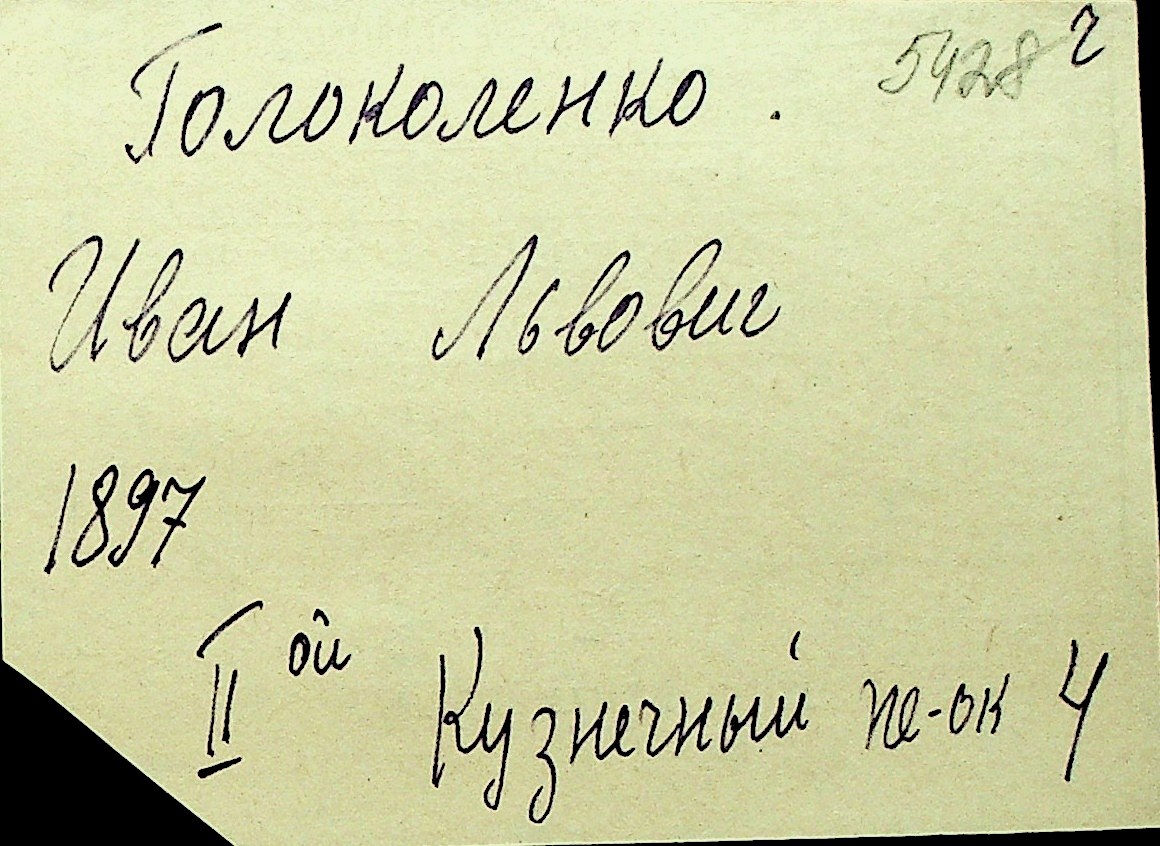 Голоколенко. 5428 г
Иван Львович
1897
II ой Кузнечный пе-ок 4